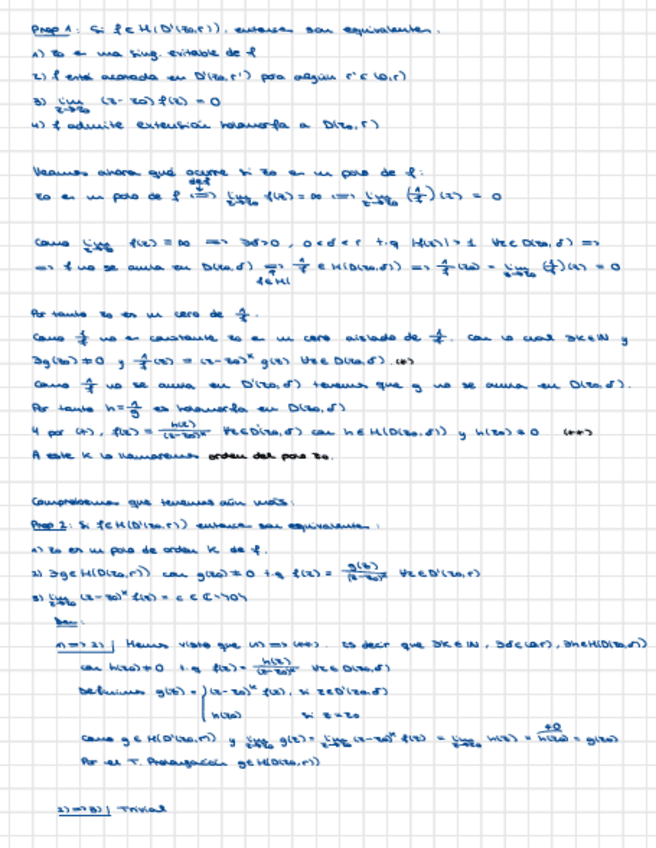 Prop 1: Si f∈H(D'(z0,r)), entonces son equivalentes:
1) z0 es una sing. evitable de f
2) f está acotada en D'(z0,r') para algún r'∈(0,r)
3) lim z→z0 (z-z0) f(z) = 0
4) f admite extensión holomorfa a D(z0,r)
Veamos ahora qué ocurre si z0 es un polo de f:
z0 es un polo de f def ⟺ lim z→z0 f(z) = ∞ ⟺ lim z→z0 (1/f)(z) = 0
Como lim z→z0 f(z) = ∞ ⟹ ∃δ>0, 0<δ<r t.q |f(z)|>1 ∀z∈D(z0,δ) ⟹
⟹ f no se anula en D(z0,δ) ⟹ f∈H 1/f ∈ H(D(z0,δ)) ⟹ 1/f(z0) = lim z→z0 (1/f)(z) = 0
Por tanto z0 es un cero de 1/f.
Como 1/f no es constante z0 es un cero aislado de 1/f. Con lo cual ∃k∈ℕ y
∃g(z0)≠0 y 1/f(z) = (z-z0)^k g(z) ∀z∈D(z0,δ). (*)
Como 1/f no se anula en D'(z0,δ) tenemos que g no se anula en D(z0,δ).
Por tanto h=1/g es holomorfa en D(z0,δ)
Y por (*), f(z) = h(z)/(z-z0)^k ∀z∈D'(z0,δ) con h∈H(D(z0,δ)) y h(z0)≠0 (**)
A este k lo llamaremos orden del polo z0.
Comprobemos que tenemos aún más:
Prop 2: Si f∈H(D'(z0,r)) entonces son equivalentes:
1) z0 es un polo de orden k de f.
2) ∃g∈H(D(z0,r)) con g(z0)≠0 t.q f(z) = g(z)/(z-z0)^k ∀z∈D'(z0,r)
3) lim z→z0 (z-z0)^k f(z) = c ∈ ℂ\{0}
Dem:
1) ⟹ 2) | Hemos visto que (1) ⟹ (**). Es decir que ∃k∈ℕ, ∃δ∈(0,r), ∃h∈H(D(z0,δ))
con h(z0)≠0 t.q f(z) = h(z)/(z-z0)^k ∀z∈D(z0,δ)
Definimos g(z) = { (z-z0)^k f(z), si z∈D'(z0,δ)
h(z0) si z=z0
Como g∈H(D'(z0,r)) y lim z→z0 g(z) = lim z→z0 (z-z0)^k f(z) = lim z→z0 h(z) = h(z0) ≠0 = g(z0)
Por el T. Prolongación g∈H(D(z0,r))
2) ⟹ 3) | Trivial